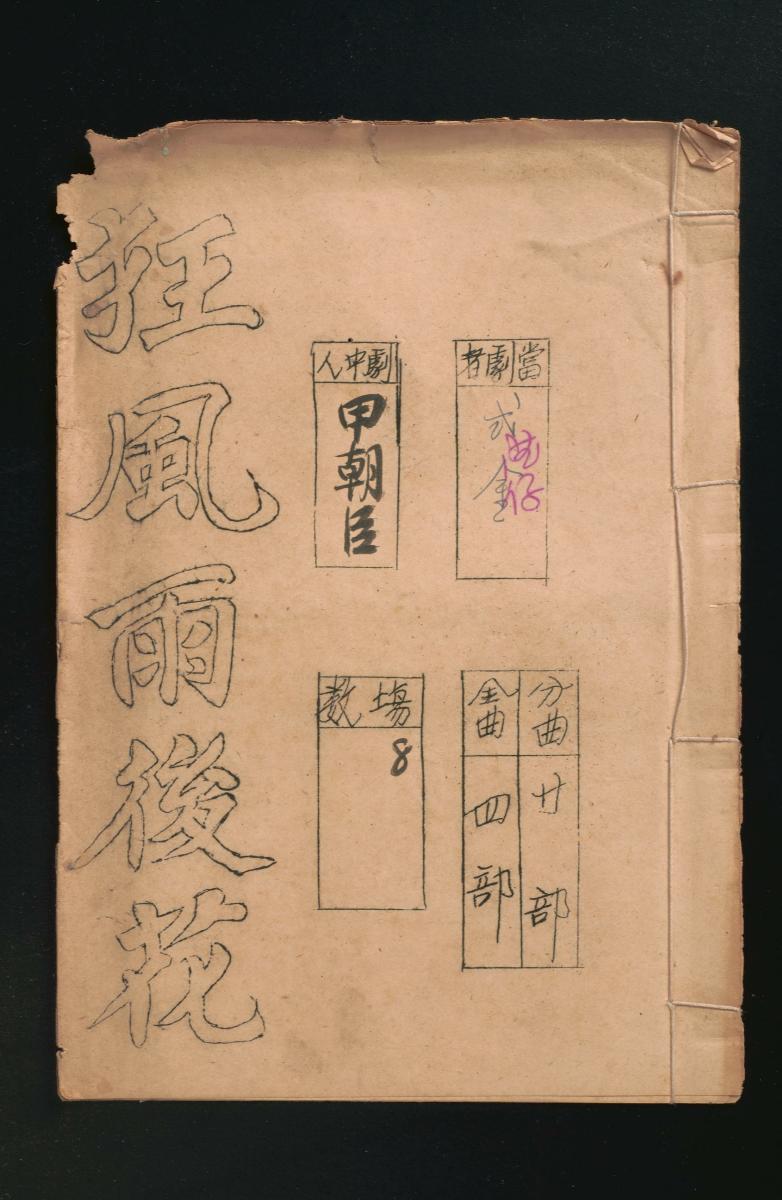 狂風雨後花
當劇者
式金
仔
劇中人
甲朝臣
分曲
廿部
全曲
四部
場數
8